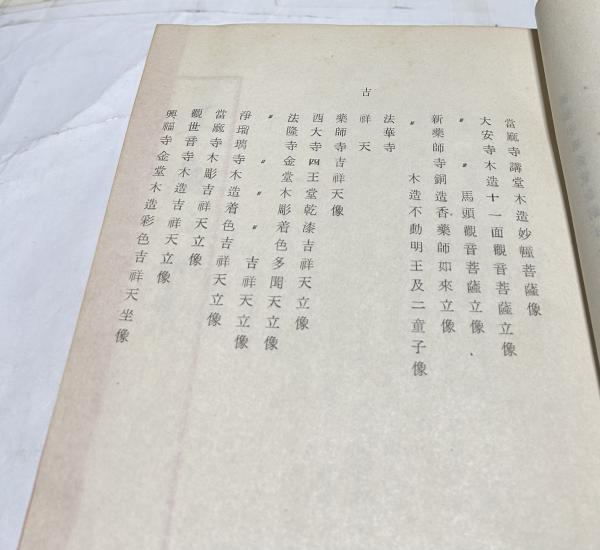 當麻寺講堂木造妙幢菩薩像
大安寺木造十一面觀音菩薩立像
〃 〃 馬頭觀音菩薩立像
新藥師寺銅造香藥師如來立像
〃 木造不動明王及二童子像
法華寺
吉祥天
藥師寺吉祥天像
西大寺四王堂乾漆吉祥天立像
法隆寺金堂木彫着色多聞天立像
〃 〃 〃 〃 吉祥天立像
淨瑠璃寺木造着色吉祥天立像
當麻寺木彫吉祥天立像
觀世音寺木造吉祥天立像
興福寺金堂木造彩色吉祥天坐像